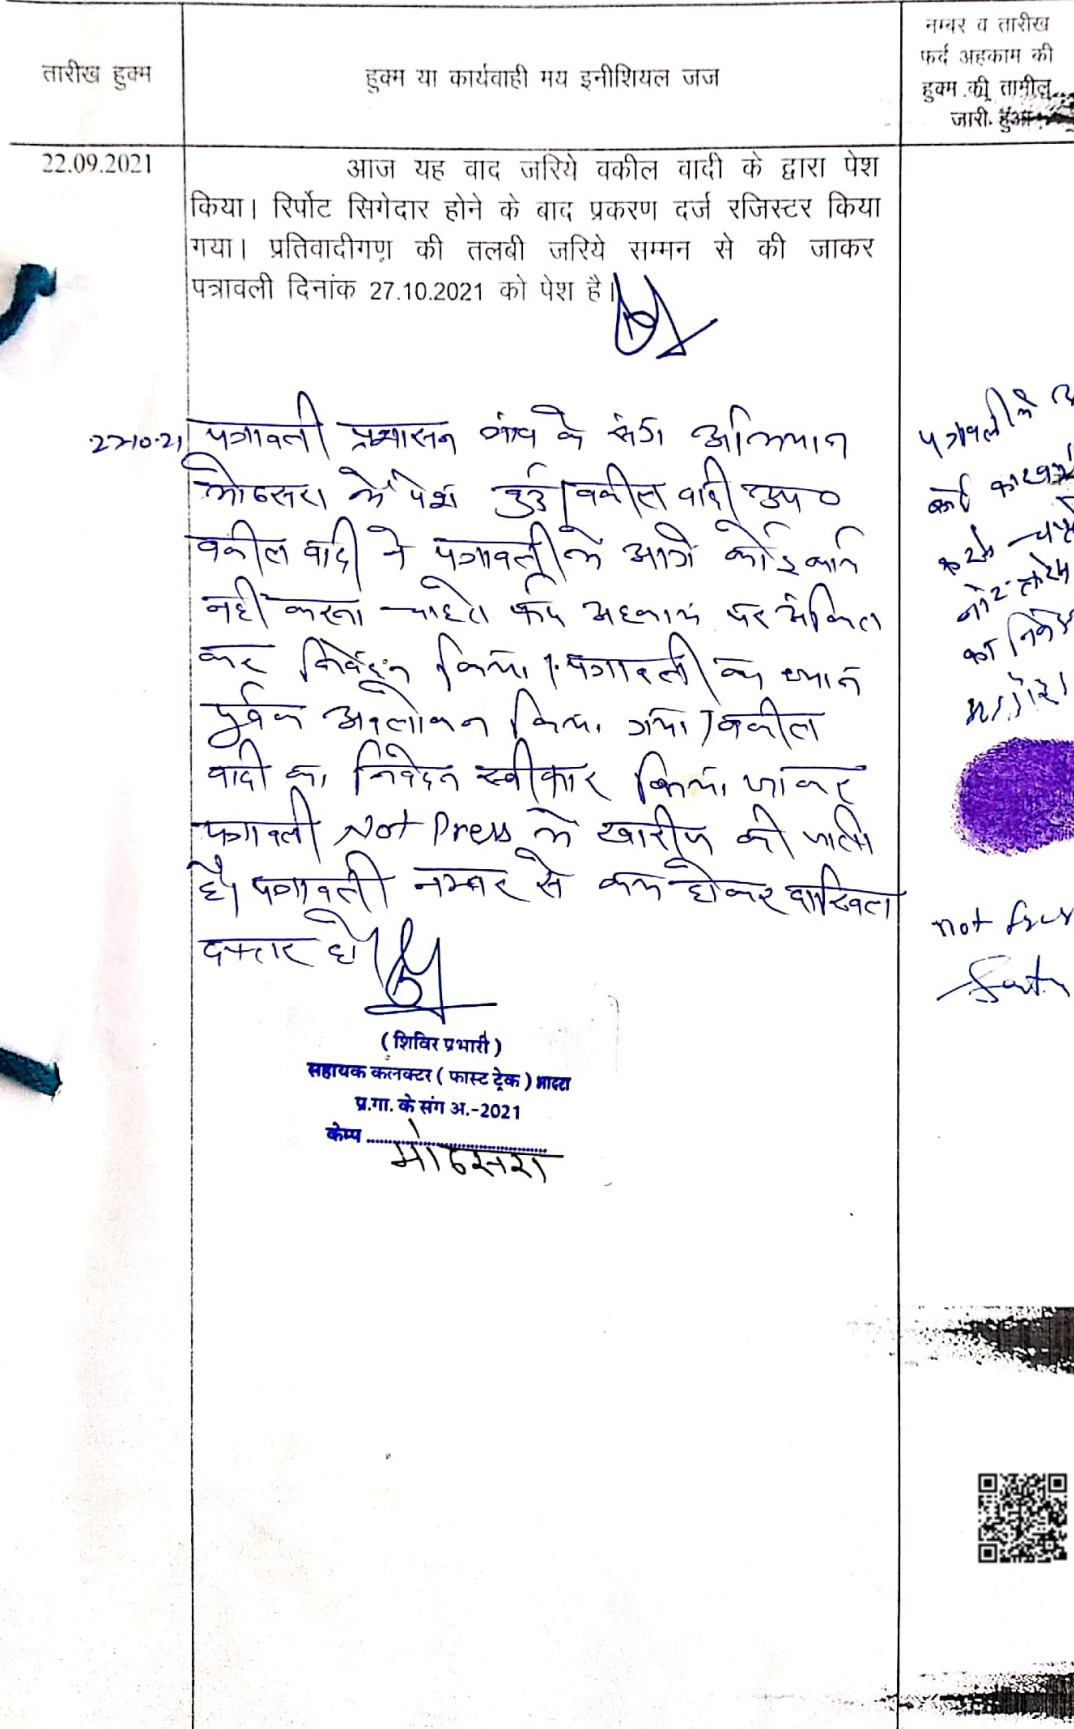 तारीख हुक्म
हुक्म या कार्यवाही मय इनीशियल जज
नम्बर व तारीख
फर्द अहकाम की
हुक्म की तामील
जारी हुआ
22.09.2021
आज यह वाद जरिये वकील वादी के द्वारा पेश
किया। रिर्पोट सिगेदार होने के बाद प्रकरण दर्ज रजिस्टर किया
गया। प्रतिवादीगण की तलबी जरिये सम्मन से की जाकर
पत्रावली दिनांक 27.10.2021 को पेश है।
27.10.21 पत्रावली प्रशासन गांव के संग अभियान
मोठसरा में पेश हुई। वकील वादी उप०
वकील वादी ने पत्रावली में आगे कोई कार्य
नही करना चाहते फर्द अहकाम पर अंकित
कर निवेदन किया। पत्रावली का ध्यान
पूर्वक अवलोकन किया गया। वकील
वादी का निवेदन स्वीकार किया जाकर
पत्रावली Not Press में खारीज की जाती
है। पत्रावली नम्बर से कम होकर दाखिल
दफ्तर हो।
(शिविर प्रभारी)
सहायक कलक्टर (फास्ट ट्रेक) भादरा
प्र.गा. के संग अ.-2021
केम्प मोठसरा
पत्रावली में
कोई
not